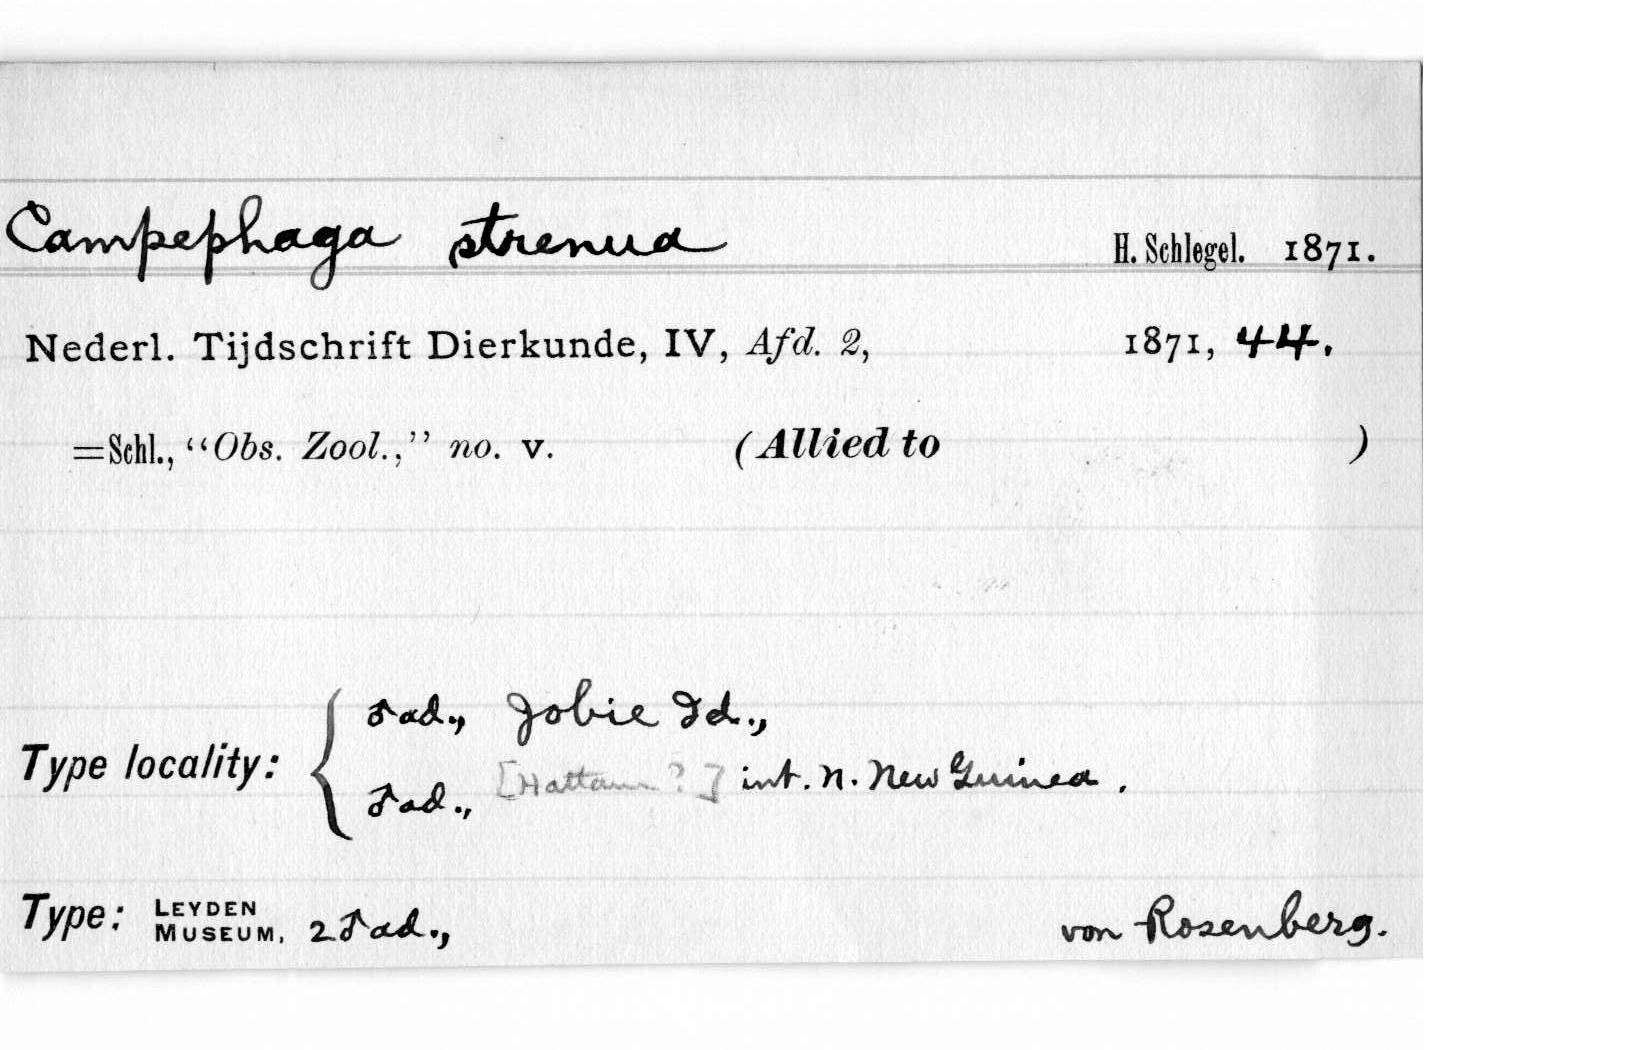 Campephaga strenua H. Schlegel. 1871.
Nederl. Tijdschrift Dierkunde, IV, Afd. 2, 1871, 44.
=Schl., “Obs. Zool.,” no. v. (Allied to )
Type locality: { ♂ad., Jobie Id.,
♂ad., [Hattam ?] int. N. New Guinea.
Type: LEYDEN MUSEUM, 2♂ad., von Rosenberg.